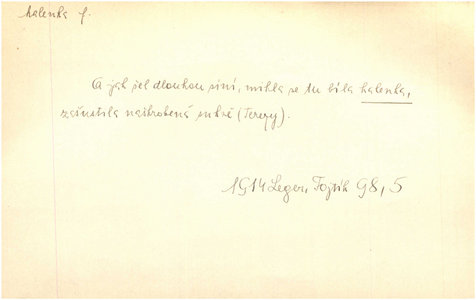 halenka f.
A jak šel dlouhou síní, mihla se tu bílá halenka,
zašustila naškrobená sukně (Terezy).
1914 Leger, Fojtík 98, 5